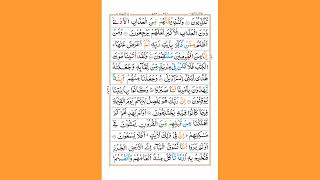 تُكَذِّبُوْنَ وَلَنُذِيْقَنَّهُمْ مِّنَ الْعَذَابِ الْاَدْنٰى
دُوْنَ الْعَذَابِ الْاَكْبَرِ لَعَلَّهُمْ يَرْجِعُوْنَ وَمَنْ
اَظْلَمُ مِمَّنْ ذُكِّرَ بِاٰيٰتِ رَبِّهٖ ثُمَّ اَعْرَضَ عَنْهَا
اِنَّا مِنَ الْمُجْرِمِيْنَ مُنْتَقِمُوْنَ وَلَقَدْ اٰتَيْنَا مُوْسَى
الْكِتٰبَ فَلَا تَكُنْ فِيْ مِرْيَةٍ مِّنْ لِّقَآئِهٖ وَجَعَلْنٰهُ
هُدًى لِّبَنِيْٓ اِسْرَآءِيْلَ وَجَعَلْنَا مِنْهُمْ اَئِمَّةً
يَّهْدُوْنَ بِاَمْرِنَا لَمَّا صَبَرُوْا وَكَانُوْا بِاٰيٰتِنَا
يُوْقِنُوْنَ اِنَّ رَبَّكَ هُوَ يَفْصِلُ بَيْنَهُمْ يَوْمَ الْقِيٰمَةِ
فِيْمَا كَانُوْا فِيْهِ يَخْتَلِفُوْنَ اَوَلَمْ يَهْدِ لَهُمْ كَمْ
اَهْلَكْنَا مِنْ قَبْلِهِمْ مِّنَ الْقُرُوْنِ يَمْشُوْنَ فِيْ
مَسٰكِنِهِمْ اِنَّ فِيْ ذٰلِكَ لَاٰيٰتٍ اَفَلَا يَسْمَعُوْنَ
اَوَلَمْ يَرَوْا اَنَّا نَسُوْقُ الْمَآءَ اِلَى الْاَرْضِ الْجُرُزِ
فَنُخْرِجُ بِهٖ زَرْعًا تَاْكُلُ مِنْهُ اَنْعَامُهُمْ وَاَنْفُسُهُمْ